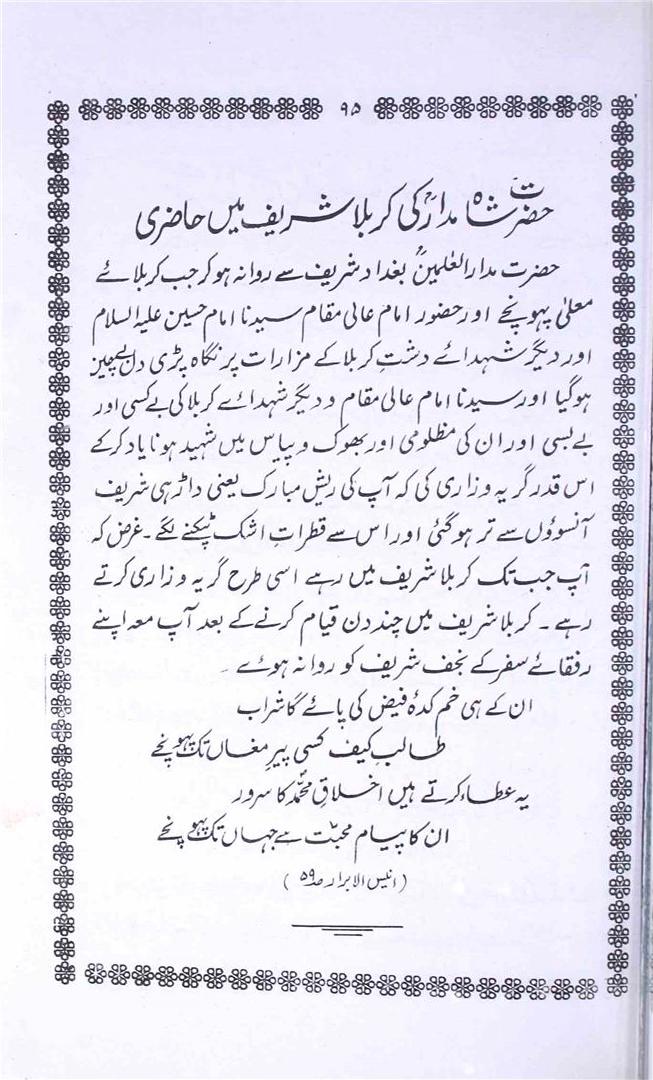 ۹۵
حضرت شاہ مدارؒ کی کربلا شریف میں حاضری
حضرت مدار العٰلمینؒ بغداد شریف سے روانہ ہو کر جب کربلائے
معلیٰ پہونچے اور حضور امام عالی مقام سیدنا امام حسین علیہ السلام
اور دیگر شہدائے دشتِ کربلا کے مزارات پر نگاہ پڑی دل بے چین
ہو گیا اور سیدنا امام عالی مقام و دیگر شہدائے کربلا کی بے کسی اور
بے بسی اور ان کی مظلومی اور بھوک و پیاس میں شہید ہونا یاد کر کے
اس قدر گریہ و زاری کی کہ آپ کی ریش مبارک یعنی داڑھی شریف
آنسوؤں سے تر ہو گئی اور اس سے قطراتِ اشک ٹپکنے لگے۔ غرض کہ
آپ جب تک کربلا شریف میں رہے اسی طرح گریہ و زاری کرتے
رہے۔ کربلا شریف میں چند دن قیام کرنے کے بعد آپ معہ اپنے
رفقائے سفر کے نجف شریف کو روانہ ہوئے۔
ان کے ہی خم کدۂ فیض کی پائے گا شراب
طالبِ کیف کسی پیرِ مغاں تک پہونچے
یہ عطاء کرتے ہیں اخلاقِ محمدؐ کا سرور
ان کا پیام محبت ہے جہاں تک پہونچے
(انیس الابرار ص ۵۹)